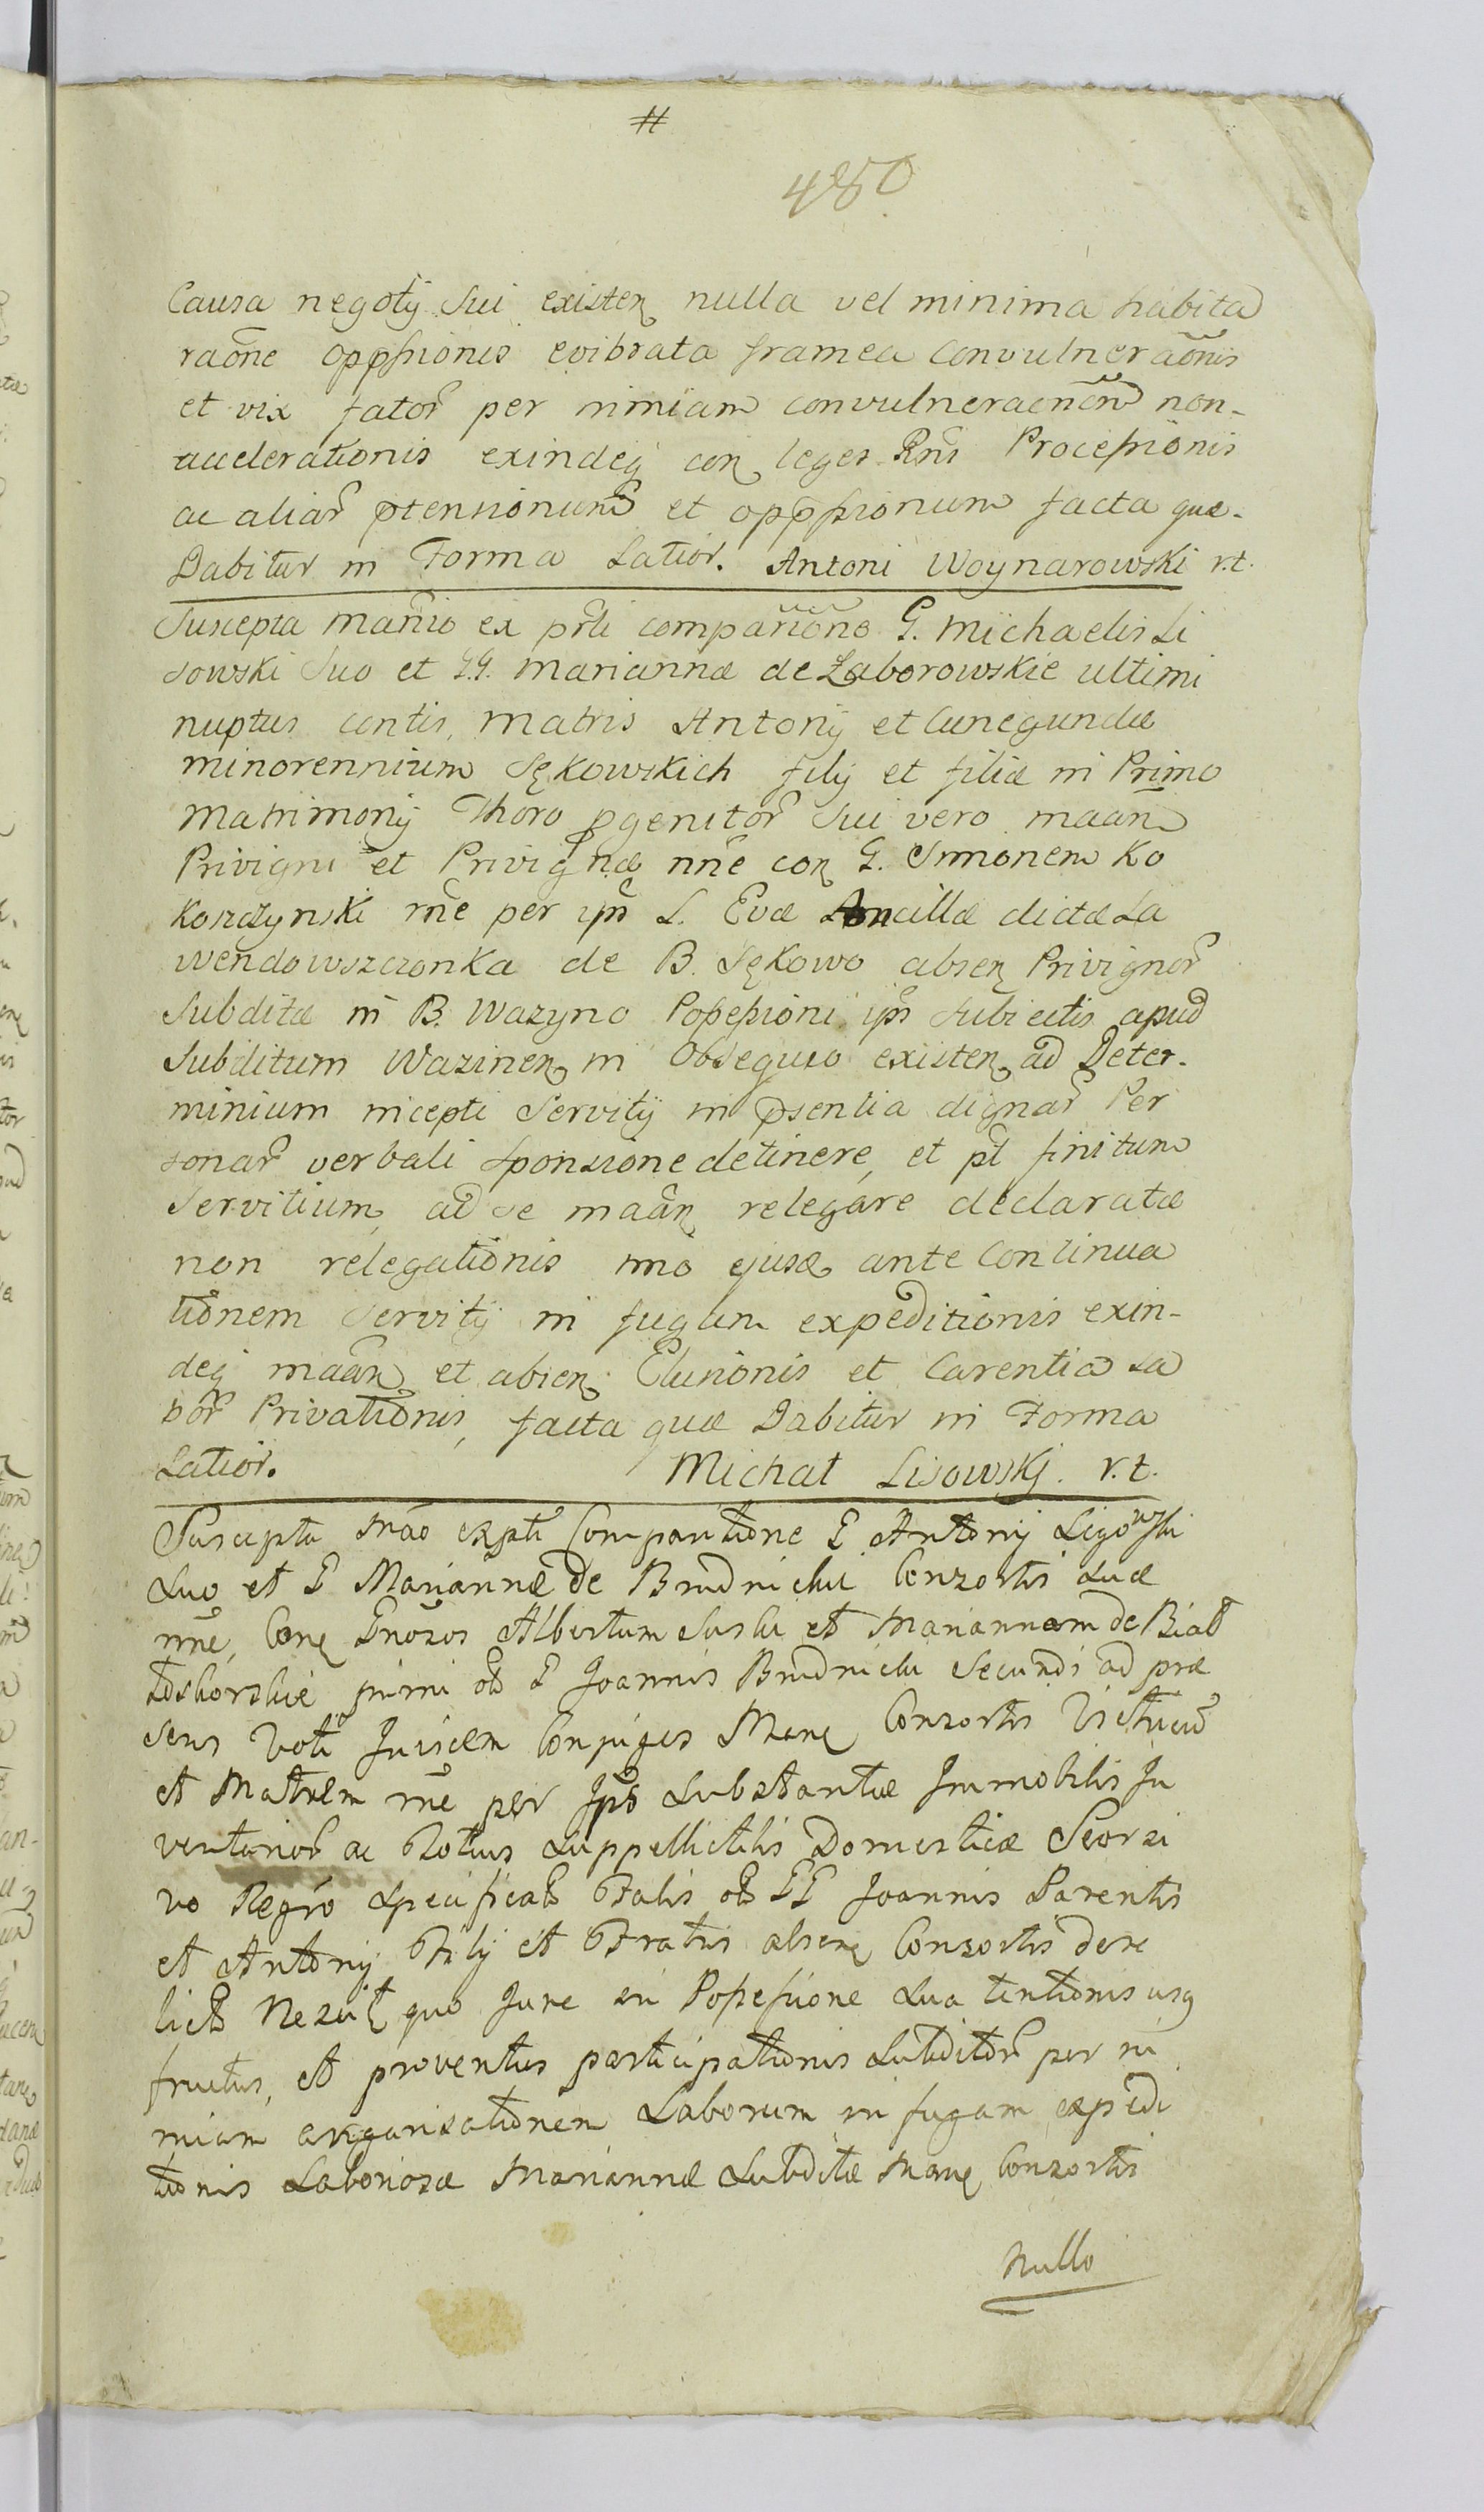 #
480
Causa negotÿ Sui existen nulla vel minima habita
raõne oppssionis evibrata framea convulneraõnis
et vix fator per nimiam convulneraõnem non-
accelerationis exindeq con leges Rni Processionis
ac aliar ptensionum et oppssionum facta quæ.
Dabitur in Forma Latior. Antoni Woynarowski r.t.
Suscepta manio ex prti compariõne G. Michaelis Li
sowski Suo et G.G. Mariannæ de Zaborowskie ultimi
nuptus contis, Matris Antonÿ et Cunegundæ
minorennium Sękowskich filÿ et filiæ in Primo
Matrimonÿ Thoro pgenitor Sui vero maan
Privigni et Privignæ nne con G. Simonem Ko
koszczynski rne per ipm L. Evæ Ancillæ dictæ La
wendowszczonka de B. Sękowo absen Privignor
Subditæ in B. Wazyno Possessioni ipsi subiectis apud
Subditum Wazinen in Obsequio existen ad Deter-
minium incepti Servitÿ in psentia dignar Per
sonar verbali Sponsione detinere, et pt finitum
Servitium, ad se maan relegare declaratæ
non relegationis imo ejusd ante Continua
tionem Servitÿ in fugam expeditionis exin-
deq maan et absen Elusionis et Carentia La
bor Privationis, facta quæ Dabitur in Forma
Latior. Michał Lisowskj. r.t.
Suscepta mão ex pti Compartione G Antonÿ Ligowski
Suo et G Mariannæ de Brudnickii Conzortis Suæ
nne, Con Gnosos Albertum Suski et Mariannam de Biało
skorskie primi ob G Joannis Brudnicki Secundi ad præ
sens Voti Invicem Conjuges Mane Conzortis Victricum
et Matrem rne per Ipos Substantiæ Immobilis In
ventarior ac Totius Suppellictilis Domesticæ Seorsi
vo Regro Specificat Talis ob GG Joannis Parentis
et Antonÿ Filÿ et Fratris absen Conzortis dere
lict Nescit quo Jure in Possessione Sua tentionis usq
fructus, et proventus participationis Subditor per ni
miam angarisationem Laborum in fugam expedi
tionis Laboriosæ Mariannæ Subditæ Mane Conzortis
Nullo